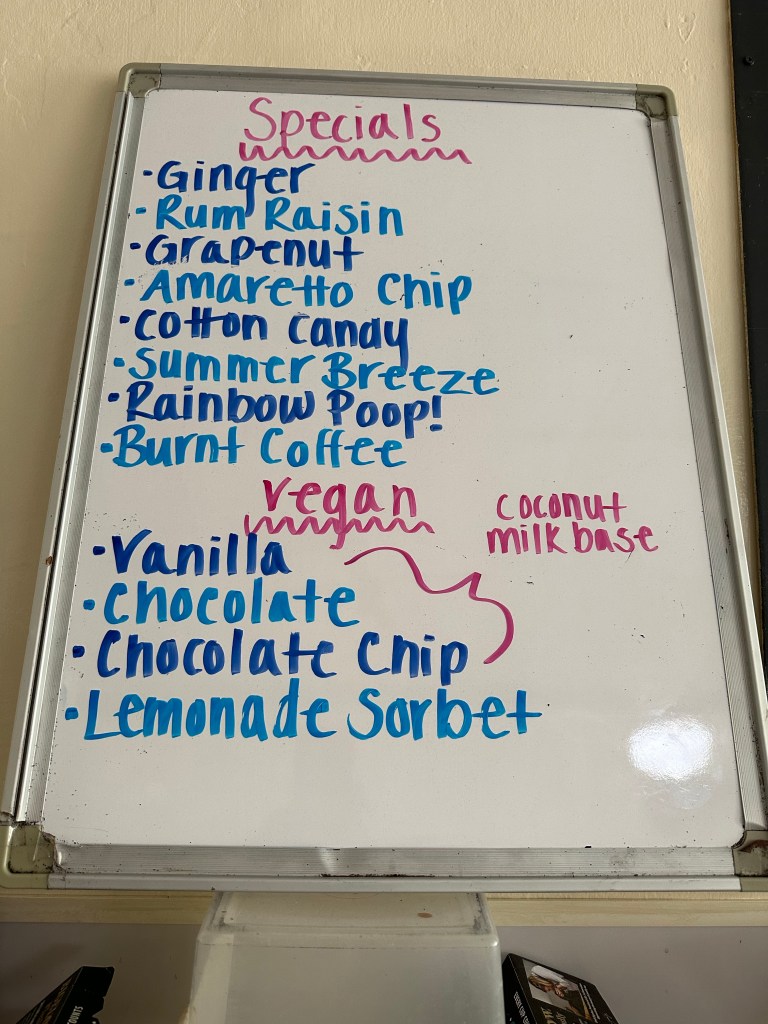 Specials
• Ginger
• Rum Raisin
• Grapenut
• Amaretto Chip
• Cotton Candy
• Summer Breeze
• Rainbow Poop!
• Burnt Coffee
Vegan
coconut
milk base
• Vanilla
• Chocolate
• Chocolate Chip
• Lemonade Sorbet